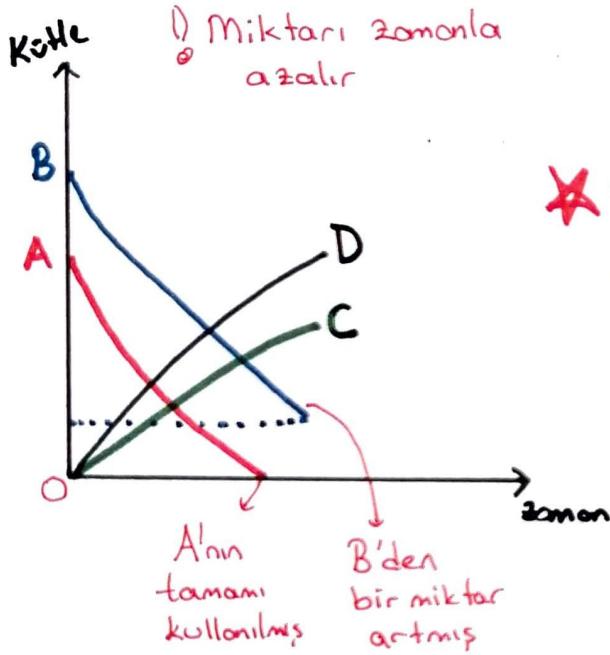 Kütle
1) Miktarı zamanla
azalır
B
A
D
C
O
zaman
A'nın
tamamı
kullanılmış
B'den
bir miktar
artmış